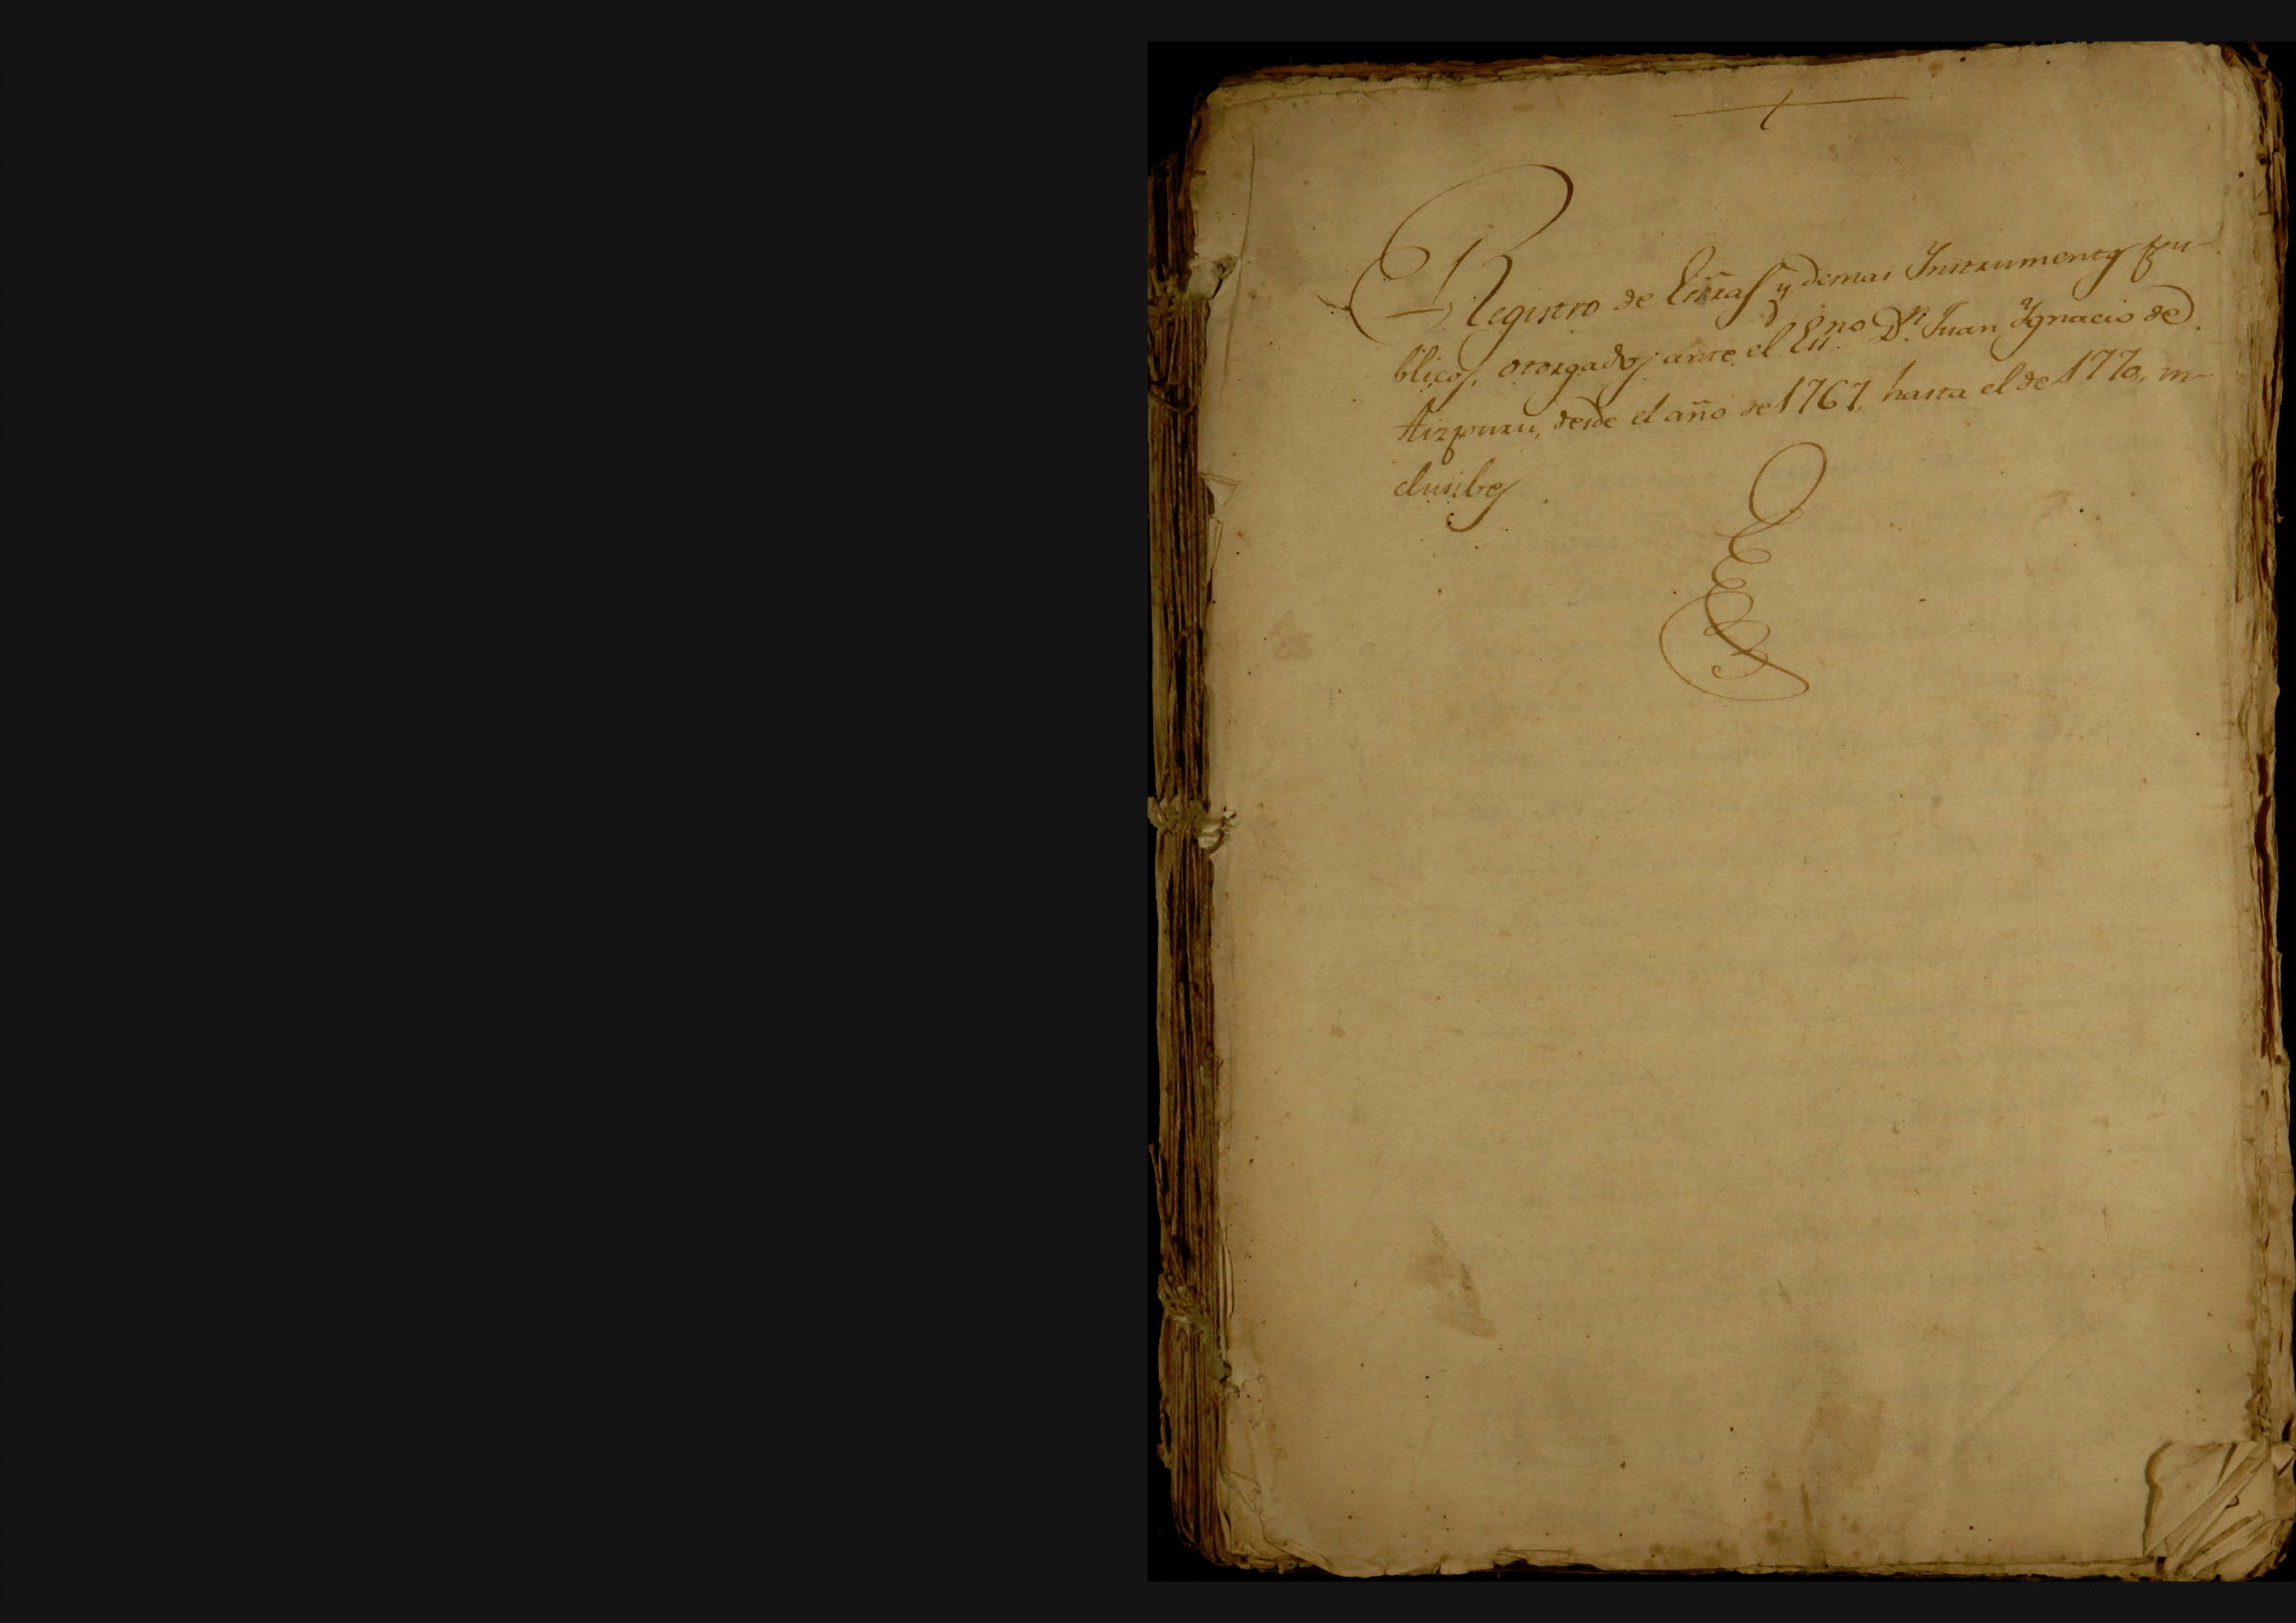 +
Registro de Essras y demas Ynstrumentos pu-
blicos, otorgados ante el Essno Dn. Juan Ygnacio de
Aizpuru, desde el año de 1767, hasta el de 1770,, in-
clusibes